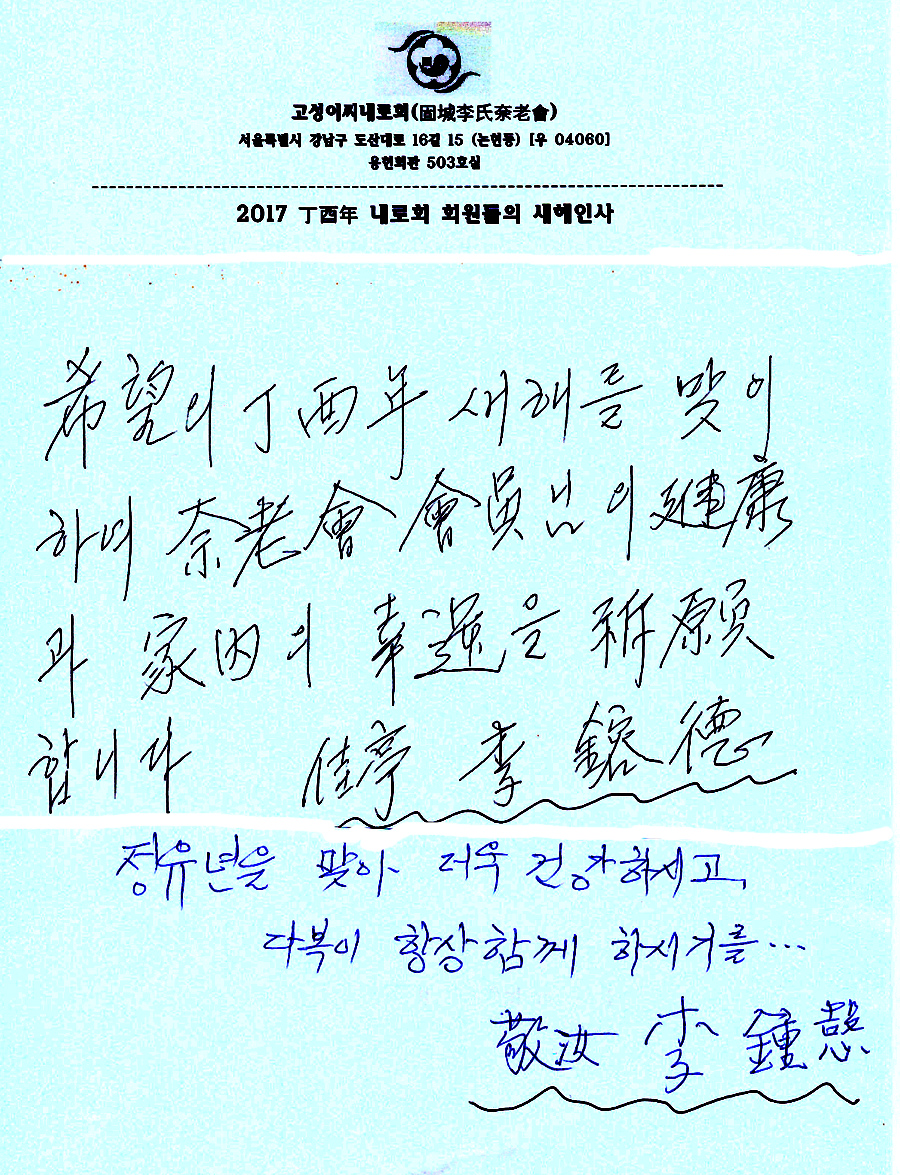 고성이씨내로회(固城李氏奈老會)
서울특별시 강남구 도산대로 16길 15 (논현동) [우 04060]
웅헌회관 503호실
2017 丁酉年 내로회 회원들의 새해인사
希望의 丁酉年 새해를 맞이
하며 奈老會 會員님의 健康
과 家內의 幸運을 祈願
합니다 佳亭 李鎔德
정유년을 맞아 더욱 건강하세고,
다복이 항상 함께 하시기를…
敬汝 李鍾